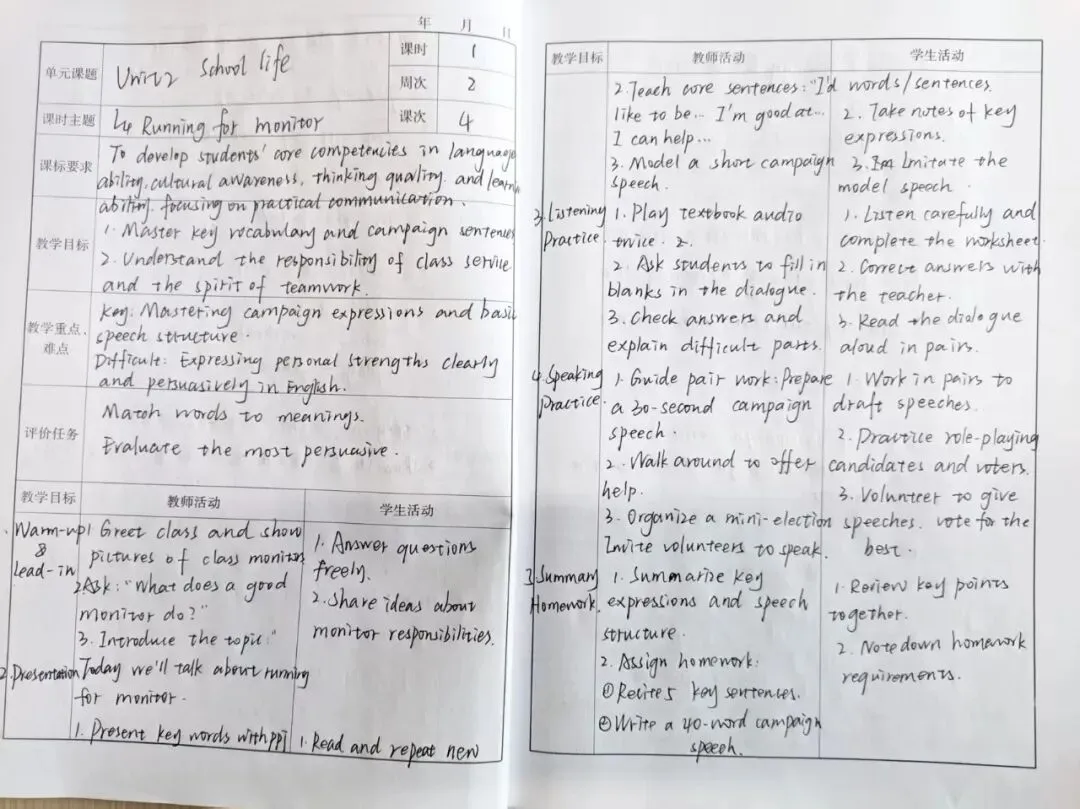 年 月 日
单元课题 Unit2 School life 课时 1
周次 2
课时主题 L4 Running for monitor 课次 4
课标要求 To develop students' core competencies in language
ability, cultural awareness, thinking quality, and learning
ability, focusing on practical communication.
教学目标 1. Master key vocabulary and campaign sentences
2. Understand the responsibility of class service
and the spirit of teamwork.
教学重点、难点 Key: Mastering campaign expressions and basic
speech structure.
Difficult: Expressing personal strengths clearly
and persuasively in English.
评价任务 Match words to meanings.
Evaluate the most persuasive.
教学目标 教师活动 学生活动
1. Warm-up & Lead-in
1 Greet class and show
pictures of class monitors
2 Ask: "What does a good
monitor do?"
3. Introduce the topic:"
Today we'll talk about running
for monitor.
1. Answer questions
freely.
2. Share ideas about
monitor responsibilities.
2. Presentation
1. Present key words with ppt
1. Read and repeat new
教学目标 教师活动 学生活动
2. Teach core sentences: "I'd
like to be... I'm good at...
I can help...
3. Model a short campaign
speech.
words/sentences.
2. Take notes of key
expressions.
3. Imitate the
model speech.
3. Listening
Practice.
1. Play textbook audio
twice. 2.
2. Ask students to fill in
blanks in the dialogue.
3. Check answers and
explain difficult parts.
1. Listen carefully and
complete the worksheet.
2. Correct answers with
the teacher.
3. Read the dialogue
aloud in pairs.
4. Speaking
Practice.
1. Guide pair work: Prepare
a 30-second campaign
speech.
2. Walk around to offer
help.
3. Organize a mini-election
Invite volunteers to speak.
1. Work in pairs to
draft speeches.
2. Practice role-playing
candidates and voters.
3. Volunteer to give
speeches. vote for the
best.
Summary
Homework.
1. Summarize key
expressions and speech
structure.
2. Assign homework:
① Recite 5 key sentences.
② Write a 40-word campaign
speech.
1. Review key points
together.
2. Note down homework
requirements.